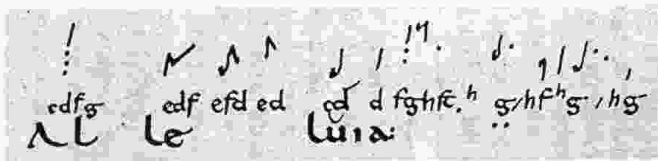 cdfg edf efd ed cd d fghfc.h g/hfhg./hg
Al le luia: